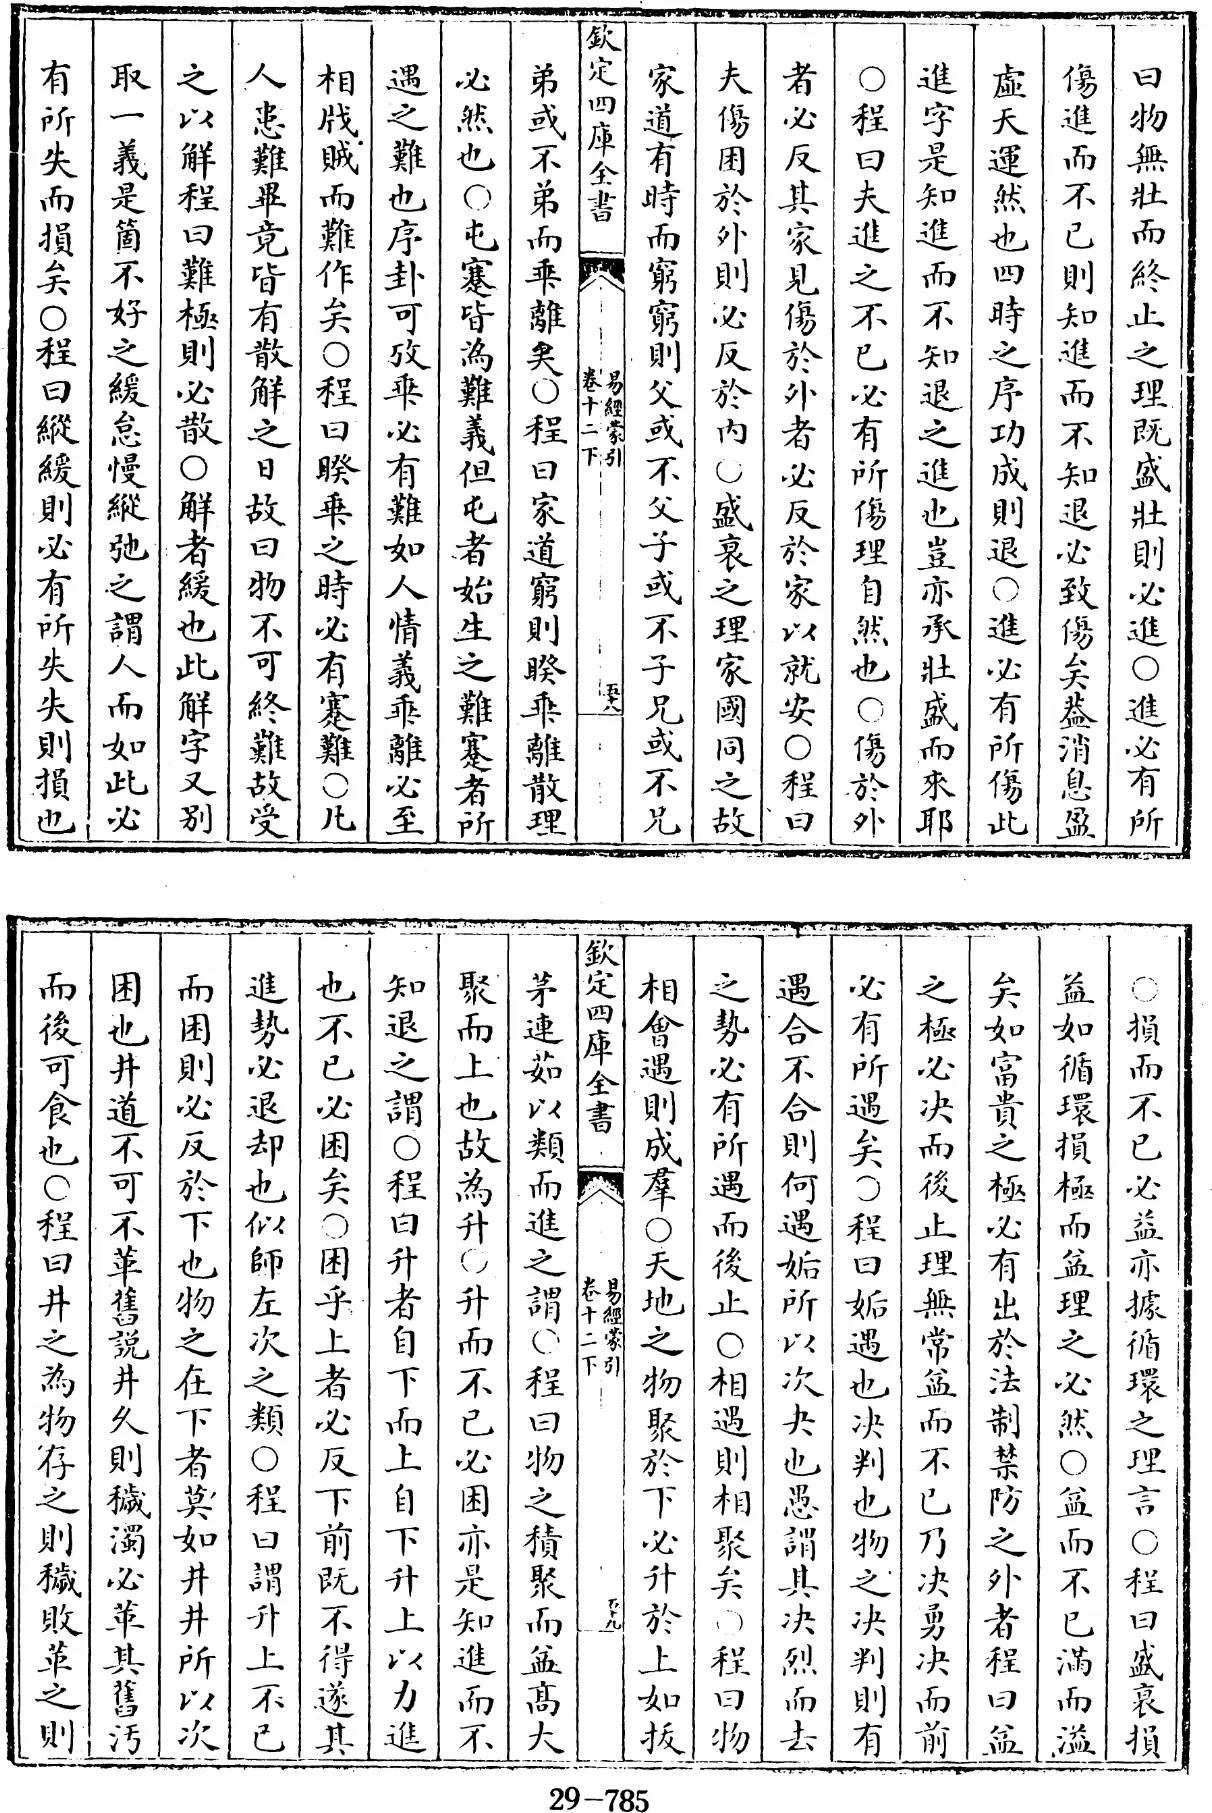 曰物無壯而終止之理既盛壯則必進○進必有所
傷進而不已則知進而不知退必致傷矣葢消息盈
虛天運然也四時之序功成則退○進必有所傷此
進字是知進而不知退之進也豈亦承壯盛而來耶
○程曰夫進之不已必有所傷理自然也○傷於外
者必反其家見傷於外者必反於家以就安○程曰
夫傷困於外則必反於內○盛衰之理家國同之故
家道有時而窮窮則父或不父子或不子兄或不兄
欽定四庫全書
易經蒙引
卷十二下
五十八
弟或不弟而乖離矣○程曰家道窮則睽乖離散理
必然也○屯蹇皆為難義但屯者始生之難蹇者所
遇之難也序卦可攷乖必有難如人情義乖離必至
相戕賊而難作矣○程曰睽乖之時必有蹇難○凡
人患難畢竟皆有散解之日故曰物不可終難故受
之以解程曰難極則必散○解者緩也此解字又別
取一義是箇不好之緩怠慢縱弛之謂人而如此必
有所失而損矣○程曰縱緩則必有所失失則損也
○損而不已必益亦據循環之理言○程曰盛衰損
益如循環損極而益理之必然○益而不已滿而溢
矣如富貴之極必有出於法制禁防之外者程曰益
之極必決而後止理無常益而不已乃決勇決而前
必有所遇矣○程曰姤遇也決判也物之決判則有
遇合不合則何遇姤所以次夬也愚謂其決烈而去
之勢必有所遇而後止○相遇則相聚矣○程曰物
相會遇則成羣○天地之物聚於下必升於上如拔
欽定四庫全書
易經蒙引
卷十二下
五十九
茅連茹以類而進之謂○程曰物之積聚而益高大
聚而上也故為升○升而不已必困亦是知進而不
知退之謂○程曰升者自下而上自下升上以力進
也不已必困矣○困乎上者必反下前既不得遂其
進勢必退却也似師左次之類○程曰謂升上不已
而困則必反於下也物之在下者莫如井井所以次
困也井道不可不革舊說井久則穢濁必革其舊汚
而後可食也○程曰井之為物存之則穢敗革之則
29-785